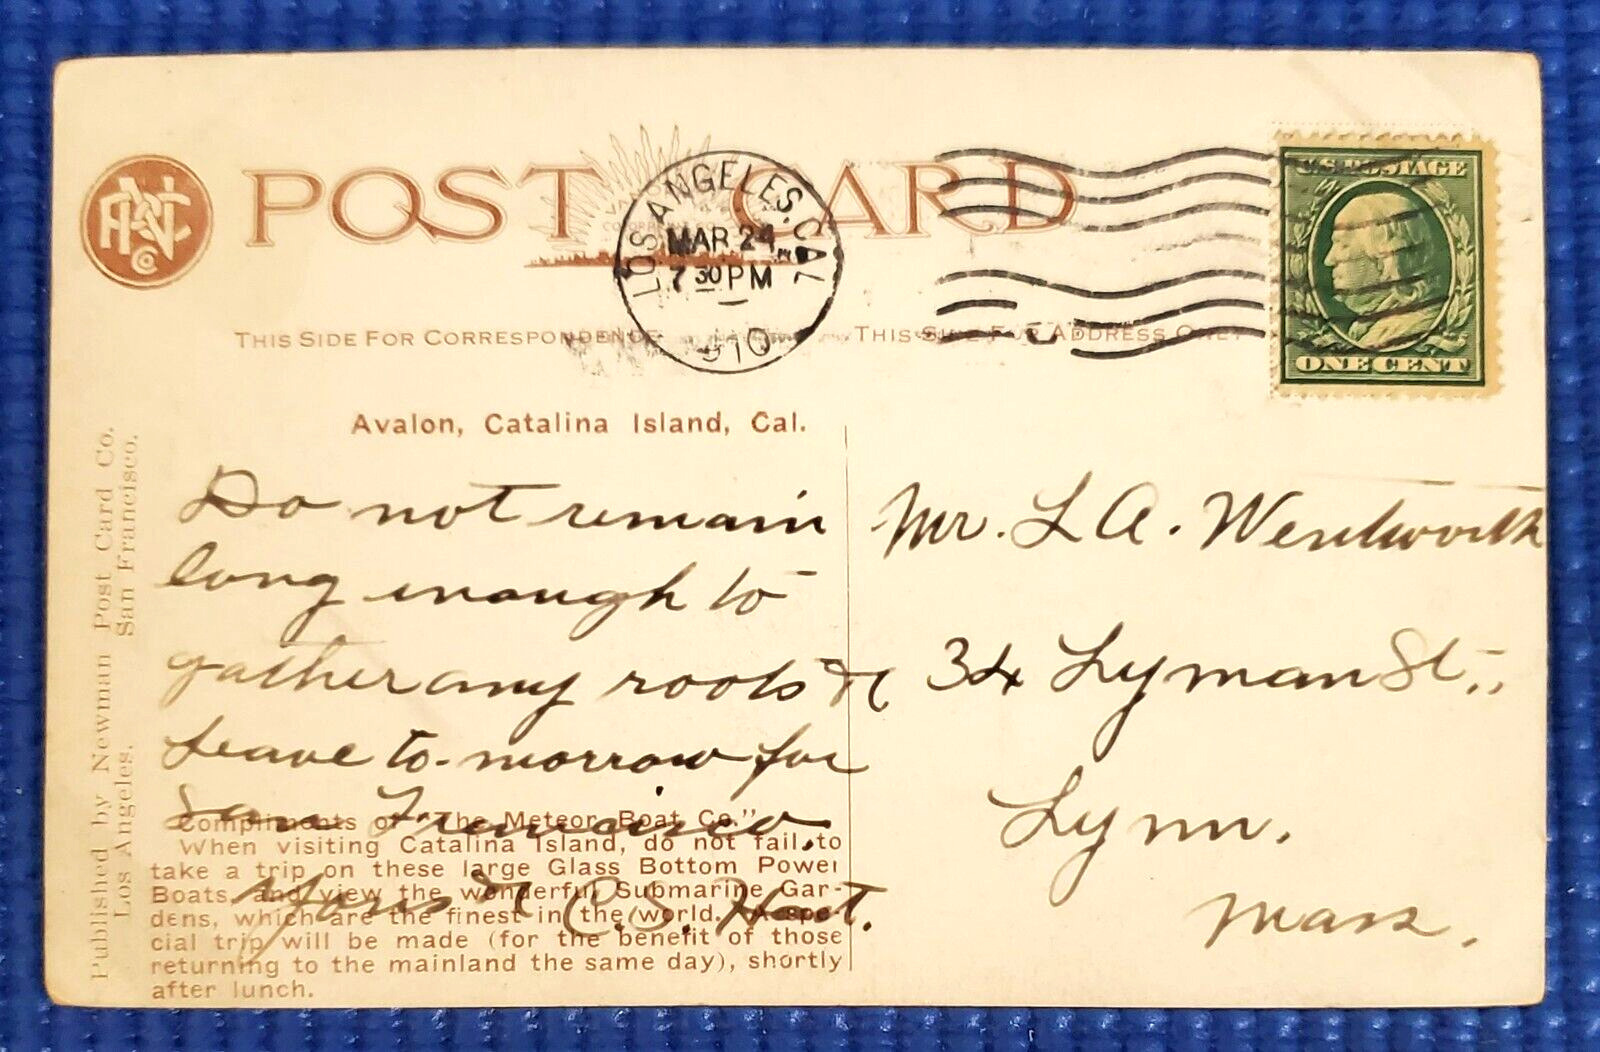 POST CARD
LOS ANGELES, CAL
MAR 24
7 30 PM
1910
U.S. POSTAGE
ONE CENT
THIS SIDE FOR CORRESPONDENCE
THIS SIDE FOR ADDRESS ONLY
Avalon, Catalina Island, Cal.
Do not remain
long enough to
gather any roots &
leave to-morrow for
San Francisco
Yours &
C. S. H
Mr. L A. Wentworth
34 Lyman St.,
Lynn,
Mass,
Compliments of "The Meteor Boat Co."
When visiting Catalina Island, do not fail to
take a trip on these large Glass Bottom Power
Boats, and view the wonderful Submarine Gar-
dens, which are the finest in the world. A spe-
cial trip will be made (for the benefit of those
returning to the mainland the same day), shortly
after lunch.
Published by Newman Post Card Co.
Los Angeles. San Francisco.